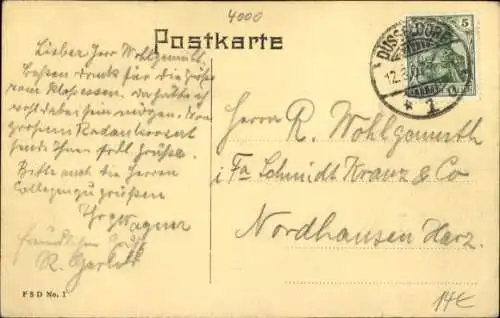 4000
Postkarte
DÜSSELDORF
12.
* 1
5
Lieber Herr Wohlgemuth.
Besten Dank für die Grüße
vom Klosessen. Da hätte ich
wohl dabei sein mögen. Von
großem Radankonzert
sende Ihnen frdl. Grüße.
Bitte auch die Herren
Collegen zu grüßen
Ihr Wagner
freundlichen Gruß
R.
Herrn R. Wohlgemuth
i/Fa Schmidt Kranz & Co
Nordhausen Harz.
F S D No. 1
14€